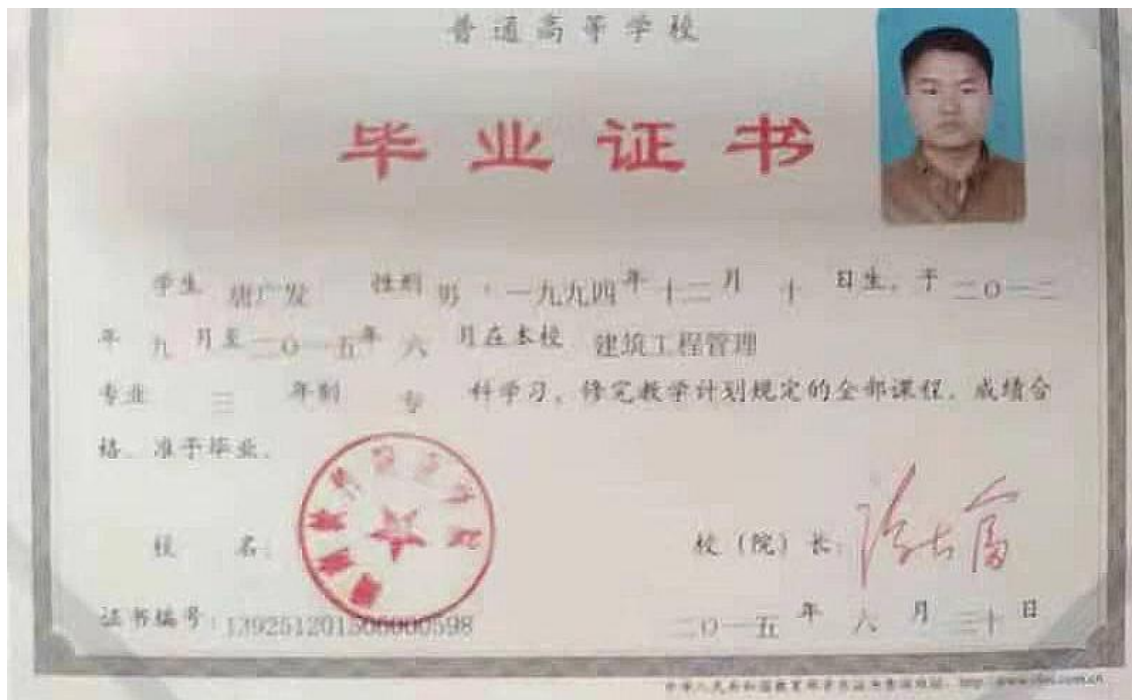 普通高等学校
毕业证书
学生 唐广发 性别 男 ,一九九四年十二月 十 日生,于二〇一二
年 九 月至二〇一五年 六 月在本校 建筑工程管理
专业 三 年制 专 科学习,修完教学计划规定的全部课程,成绩合
格,准予毕业。
校 名: 校(院)长:
证书编号:139251201506000598 二〇一五 年 六 月 三十 日
中华人民共和国教育部学历证书查询网址:http://www.chsi.com.cn